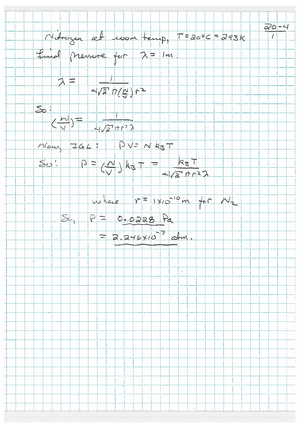 20-4
1
Nitrogen at room temp, T=20°C = 293K
find pressure for λ = 1m.
λ = 1 / 4√2 π(N/V)r²
So:
(N/V) = 1 / 4√2 πr²λ
Now, IGL: PV = N k_B T
So: P = (N/V) k_B T = k_B T / 4√2 πr²λ
where r = 1x10⁻¹⁰m for N₂
So, P = 0.0228 Pa
= 2.246x10⁻⁷ atm.